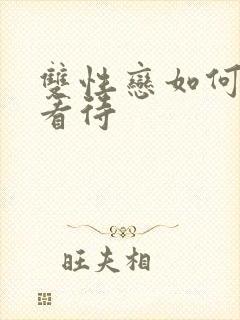 雙性戀如何
看待
旺夫相